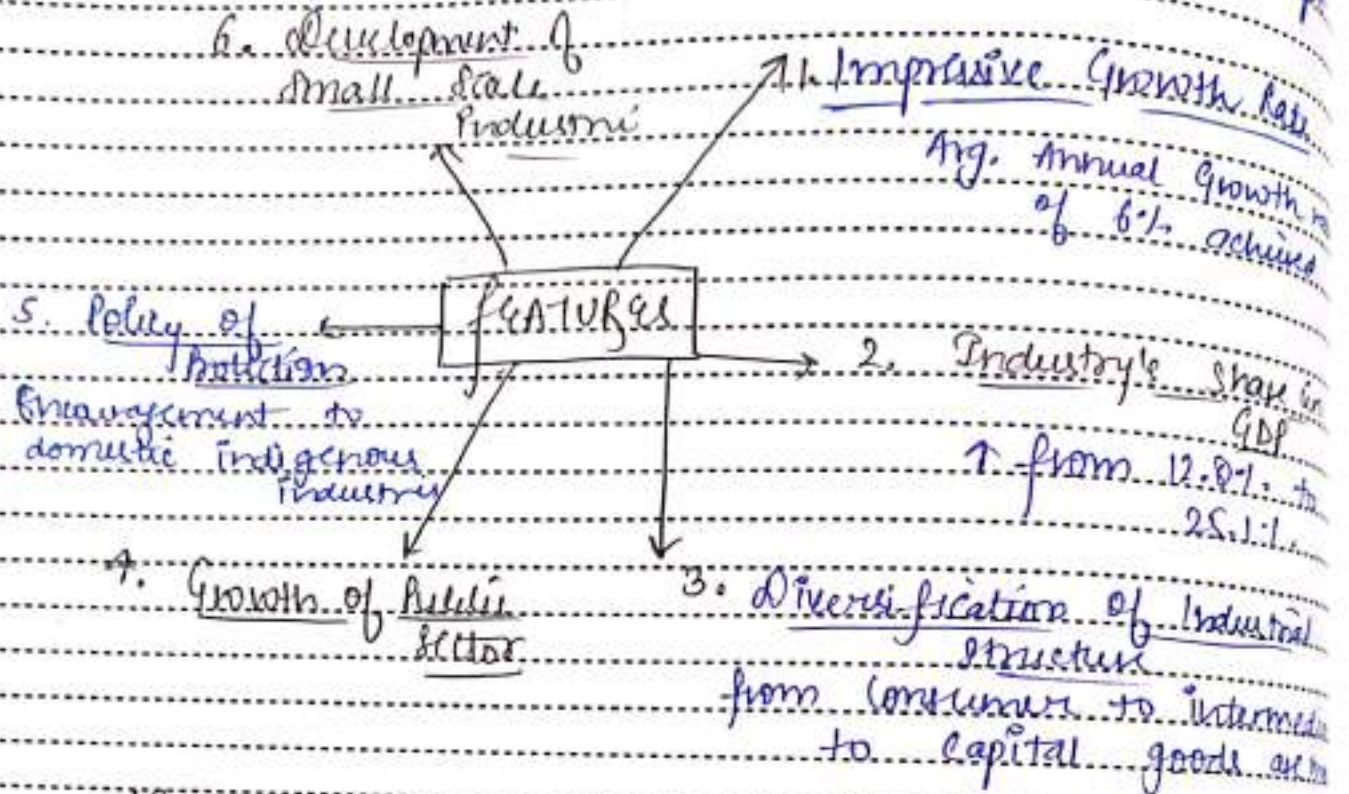 6. Development of
Small Scale
Industri
1. Impressive Growth Rate
Avg. Annual Growth
of 6% achieved
FEATURES
5. Policy of
Protection
Encouragement to
domestic indigenous
industries
2. Industry's share in
GDP
↑ from 12.8% to
25.1%.
4. Growth of Public
Sector
3. Diversification of Industrial
Structure
from consumer to intermedi
to capital goods